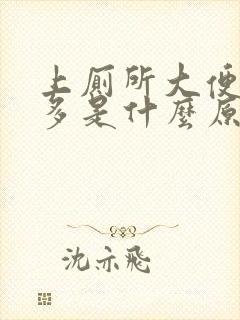 上厠所大便
多是什麼原
沈亦飛